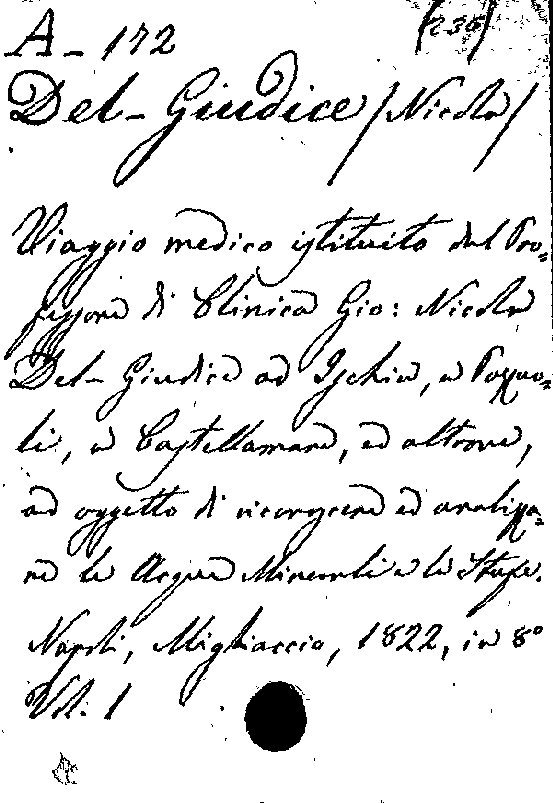 A - 172 (236)
Del-Giudice (Nicola)
Viaggio medico istituito dal Pro=
fessore di Clinica Gio: Nicola
Del-Giudice ad Ischia, a Pozzuo=
li, a Castellamare, ed altrove,
ad oggetto di riconoscere ed analizza=
re le Acque Minerali e le Stufe.
Napoli, Migliaccio, 1822, in 8º
Vol. 1